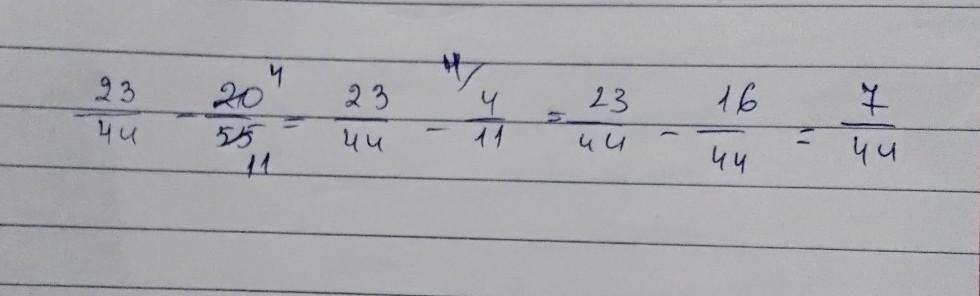 23/44 - 20/55 (4/11) = 23/44 - 4/11 (4/) = 23/44 - 16/44 = 7/44